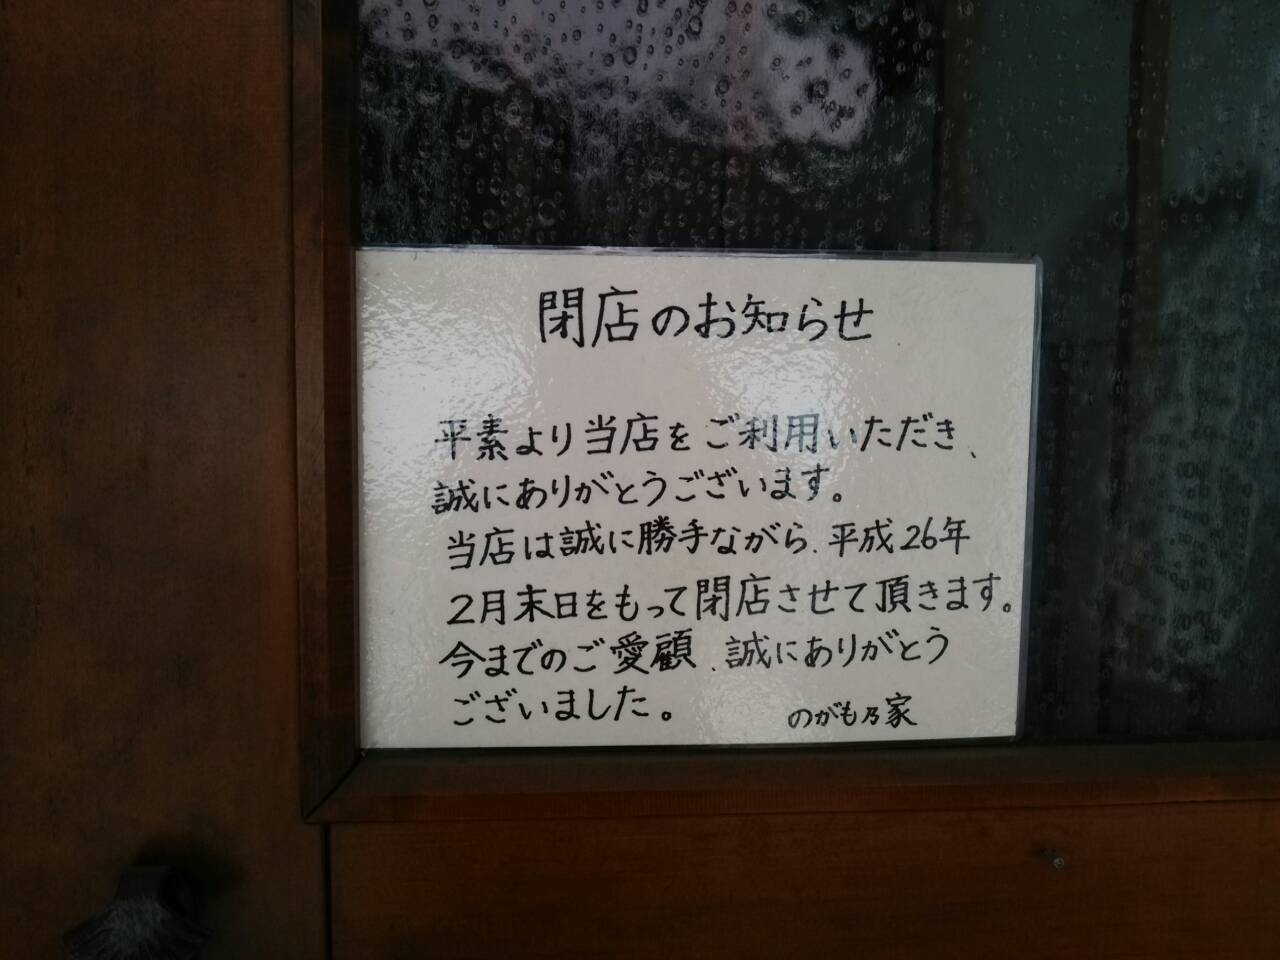 閉店のお知らせ
平素より当店をご利用いただき、
誠にありがとうございます。
当店は誠に勝手ながら、平成26年
2月末日をもって閉店させて頂きます。
今までのご愛顧、誠にありがとう
ございました。
のがも乃家